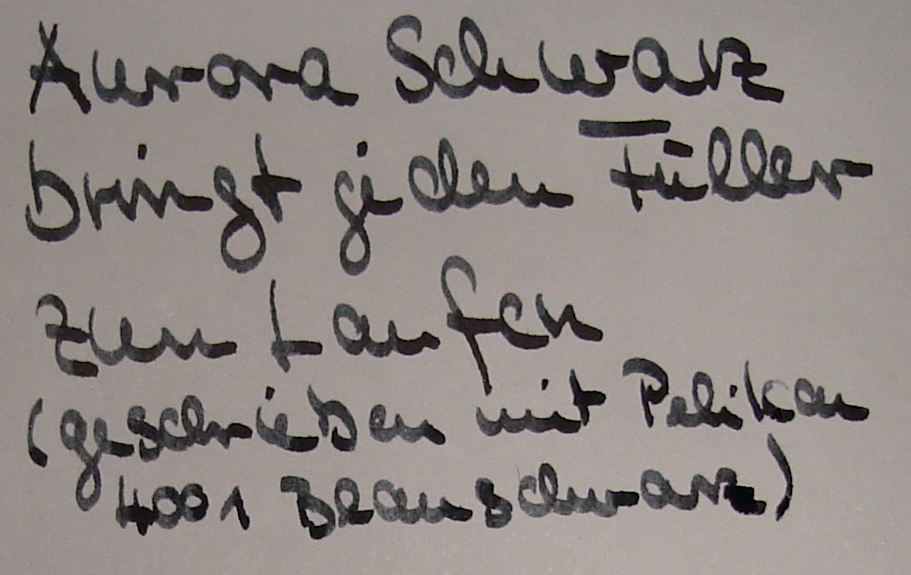 Aurora Schwarz
bringt jeden Füller
zum Laufen
(geschrieben mit Pelikan
4001 Blauschwarz)